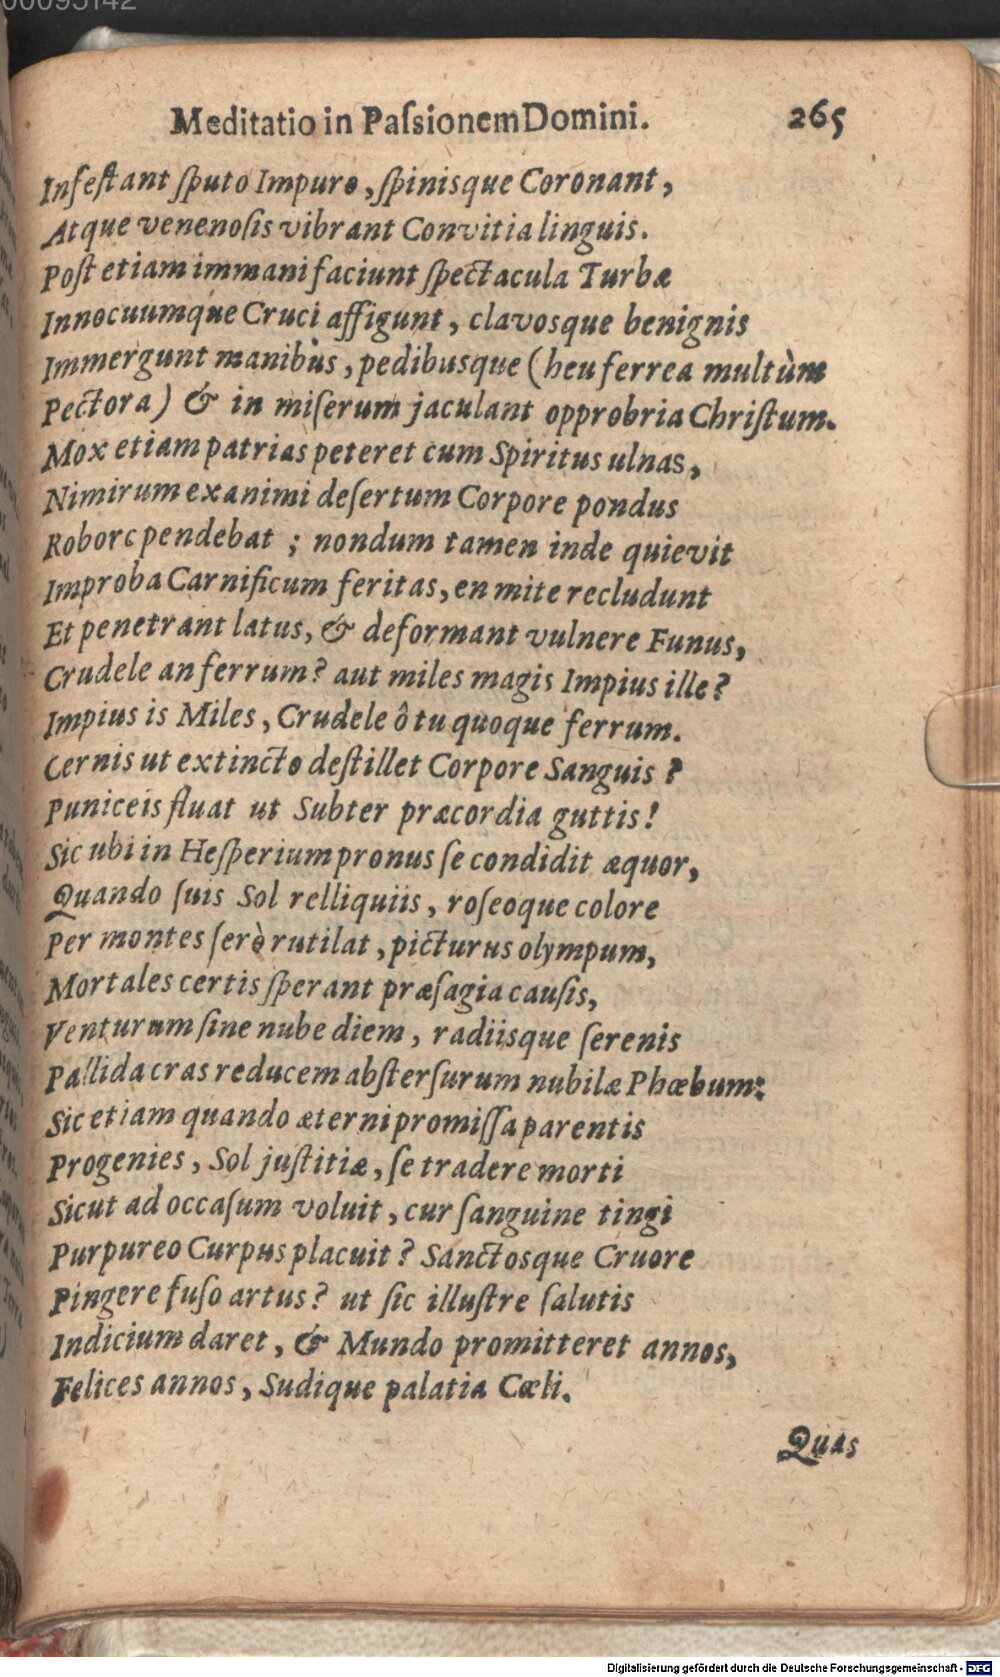 00095142
Meditatio in Paſsionem Domini. 265
Infeſtant ſputo Impuro, ſpinisque Coronant,
Atque venenoſis vibrant Convitia linguis.
Poſt etiam immani faciunt ſpectacula Turbæ
Innocuumque Cruci affigunt, clavosque benignis
Immergunt manibùs, pedibusque (heu ferrea multùm
Pectora) & in miſerum jaculant opprobria Chriſtum.
Mox etiam patrias peteret cum Spiritus ulnas,
Nimirum exanimi deſertum Corpore pondus
Roborc pendebat ; nondum tamen inde quievit
Improba Carnificum feritas, en mite recludunt
Et penetrant latus, & deformant vulnere Funus,
Crudele an ferrum? aut miles magis Impius ille?
Impius is Miles, Crudele ô tu quoque ferrum.
Cernis ut extincto deſtillet Corpore Sanguis ?
Puniceis fluat ut Subter præcordia guttis!
Sic ubi in Heſperium pronus ſe condidit æquor,
Quando ſuis Sol relliquiis, roſeoque colore
Per montes ſerò rutilat, picturus olympum,
Mortales certis ſperant præſagia cauſis,
Venturum ſine nube diem, radiisque ſerenis
Pallida cras reducem abſterſurum nubila Phœbum:
Sic etiam quando æterni promiſſa parentis
Progenies, Sol juſtitiæ, ſe tradere morti
Sicut ad occaſum voluit, cur ſanguine tingi
Purpureo Curpus placuit? Sanctosque Cruore
Pingere fuſo artus? ut ſic illuſtre ſalutis
Indicium daret, & Mundo promitteret annos,
Felices annos, Sudique palatia Cœli.
Quas
Digitalisierung gefördert durch die Deutsche Forschungsgemeinschaft - DFG